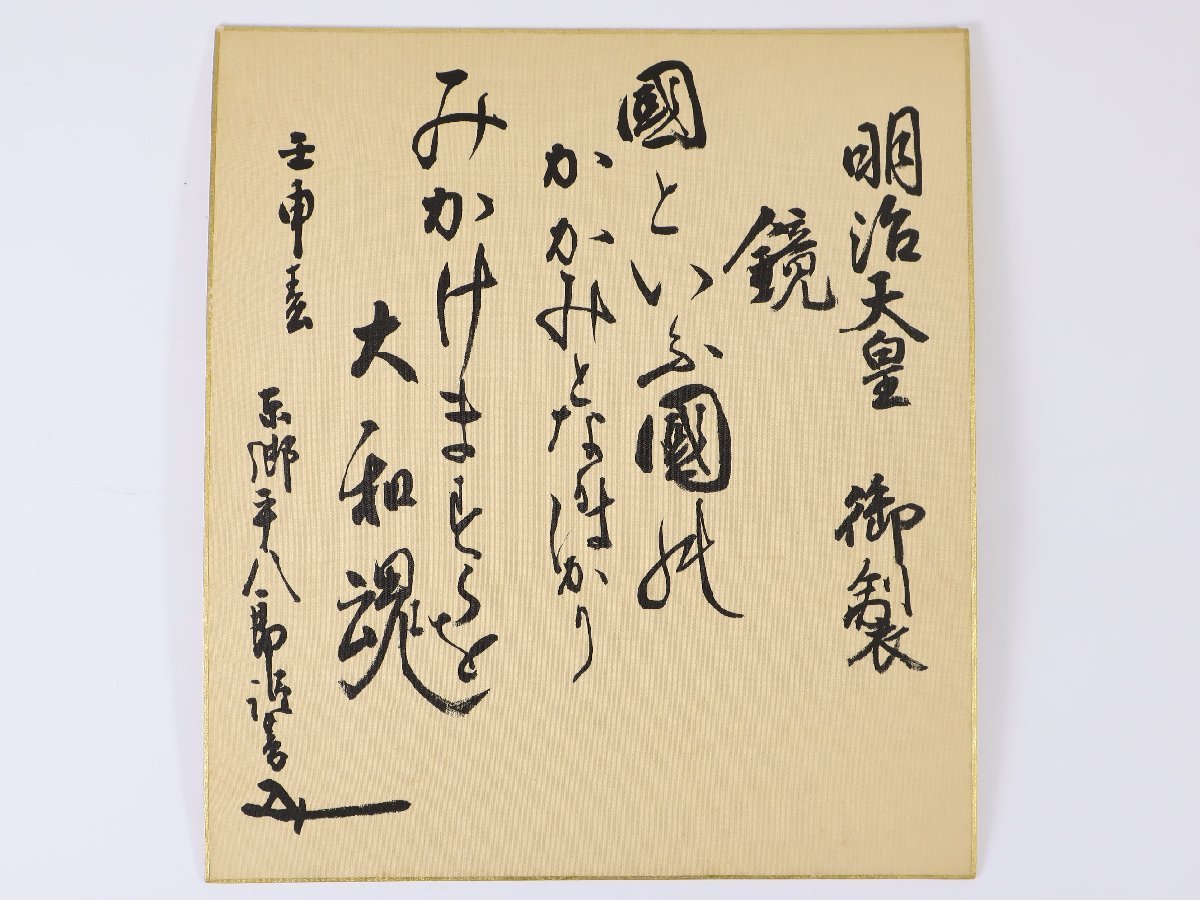 明治天皇 御製
鏡
國といふ國の
かかみとなるはかり
みかけますらを
大和魂
壬申春
東郷平八郎謹書